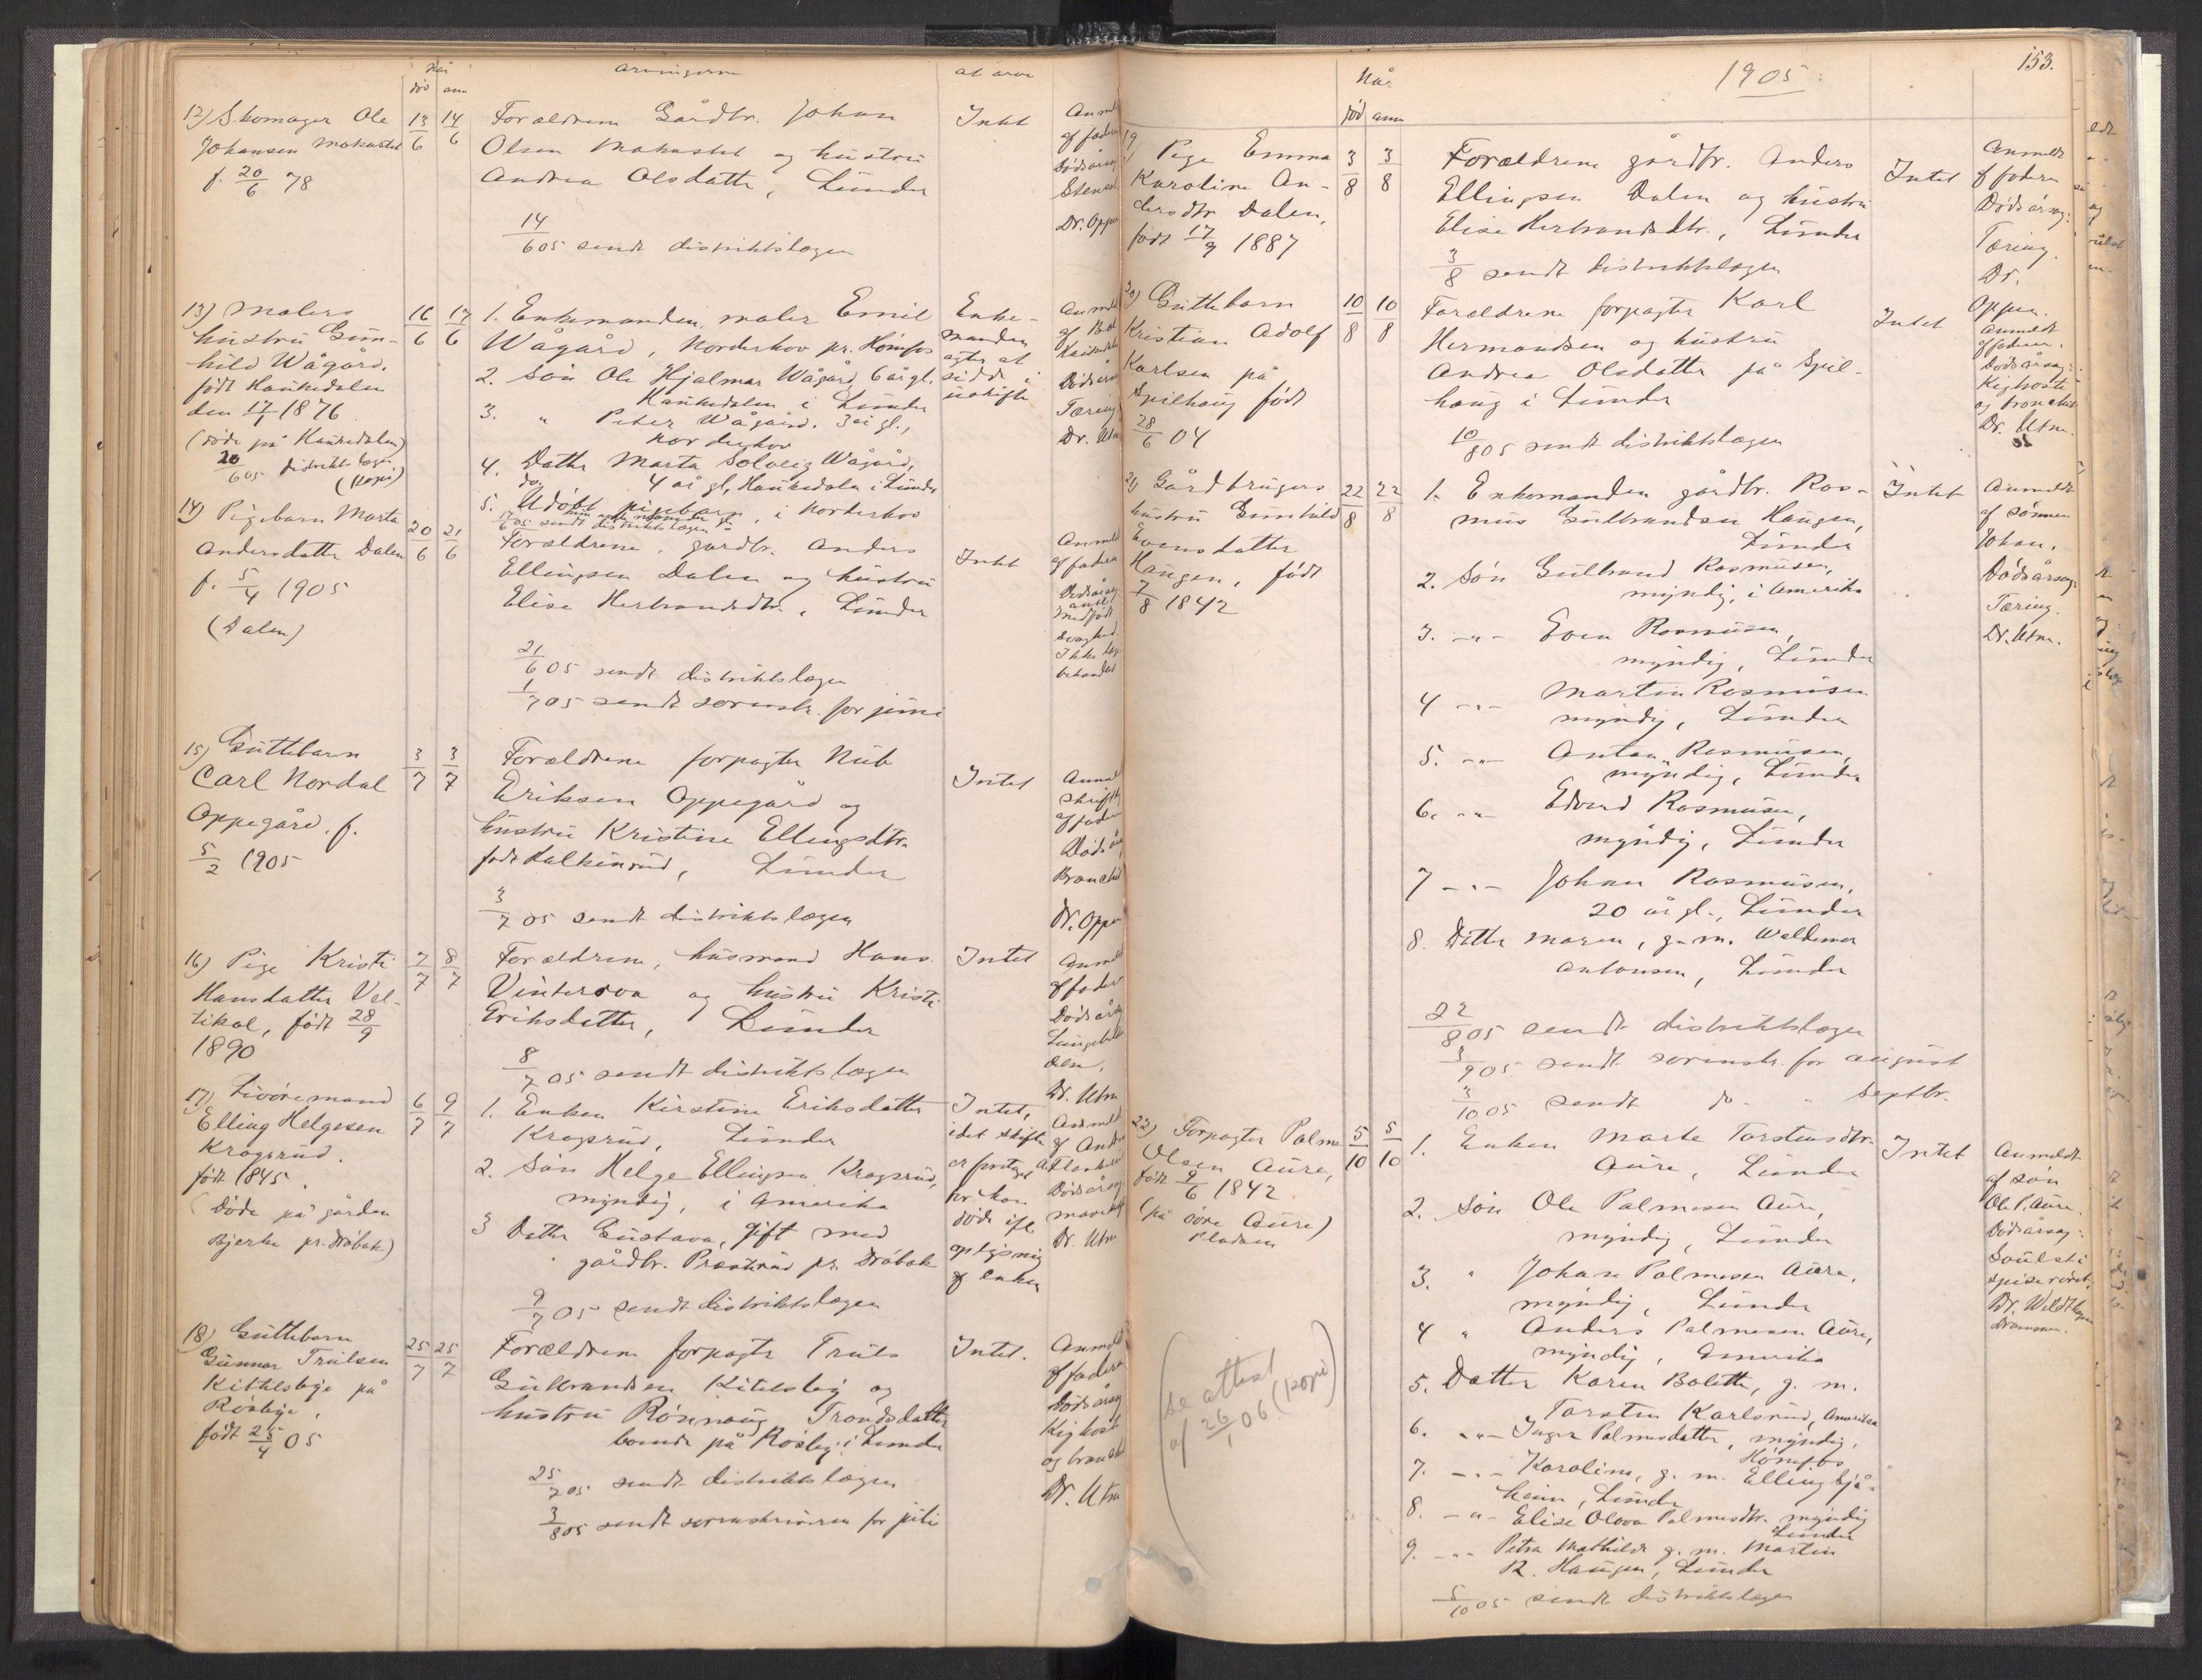 når
død anm
arvingerne
at arve
12) Skomager Ole
Johansen Mokastet
f. 20/6 78
13/6 14/6
Forældrene Gårdbr. Johan
Olsen Mokastet og hustru
Andrea Olsdatter, Lunder
14/6 05 sendt distriktslægen
Intet
Anmeldt
af faderen
Dødsårsag
Dr. Oppen
13) Malers
hustru Gun-
hild Wågård.
født Haukedalen
den 17/1 1876
(døde på Haukedalen)
20/6 05 distriktslægen
(kopi)
16/6 17/6
1. Enkemanden, maler Emil
Wågård, Norderhov pr. Hønefos
2. Søn Ole Hjalmar Wågård 6 år gl.
Haukedalen i Lunder
3. " Peter Wågård. 3 år gl.,
Norderhov
4. Datter Marta Solveig Wågård,
4 år gl., Haukedalen i Lunder
5. do. Udøbt pigebarn, i Norderhov
17/6 05 sendt distriktslægen
Enke-
manden
agter at
sidde i
uskifte
Anmeldt
af
Dødsårsag
Tæring
Dr. Utne
14) Pigebarn Marta
Andersdatter Dalen
f. 5/4 1905
(Dalen)
20/6 21/6
Forældrene, gårdbr. Anders
Ellingsen Dalen og hustru
Elise Herbrandsdtr., Lunder
21/6 05 sendt distriktslægen
1/7 05 sendt sorenskr. for juni
Intet
Anmeldt
af faderen
Dødsårsag
medfødt
svaghed
Ikke læge
behandlet
15) Guttebarn
Carl Nordal
Oppegård, f.
5/2 1905
3/7 3/7
Forældrene forpagter Nub
Eriksen Oppegård og
hustru Kristine Ellingsdtr.
født Kalkinrud, Lunder
3/7 05 sendt distriktslægen
Intet
Anmeldt
skriftlig
af faderen
Dødsårsag
Dr. Oppen
16) Pige Kristi
Hansdatter Vel-
tikol, født 28/9
1890
7/7 8/7
Forældrene, husmand Hans
Vintersva og hustru Kristi
Eriksdatter, Lunder
8/7 05 sendt distriktslægen
Intet
Anmeldt
af faderen
Dødsårsag
Dr. Utne
17) Livøremand
Elling Helgesen
Krogsrud.
født 1845.
(døde på gården
Bjerke pr. Drøbak)
6/7 9/7
1. Enken Kirstine Eriksdatter
Krogsrud, Lunder
2. Søn Helge Ellingsen Krogsrud,
myndig, i Amerika
3 Datter Gustava, gift med
gårdbr. Præstrud pr. Drøbak
9/7 05 sendt distriktslægen
Intet,
idet skifte
er foretaget
før han
døde ifl.
oplysning
af enken
Anmeldt
Dødsårsag
mavekræft
Dr. Utne
18) Guttebarn
Gunnar Trulsen
Kittelsbye på
Rosbye,
født 25/4 05
25/7 25/7
Forældrene forpagter Truls
Gulbrandsen Kitelsby og
hustru Rønnaug Trondsdatter
boende på Rosby i Lunder
25/7 05 sendt distriktslægen
3/8 05 sendt sorenskriveren for juli
Intet.
Anmeldt
af faderen
Dødsårsag
Kighoste
Dr. Utne
1905
153.
Når
død anm
19) Pige Emma
Karoline An-
dersdtr. Dalen,
født 17/9 1887
3/8 3/8
Forældrene gårdbr. Anders
Ellingsen Dalen og hustru
Elise Herbrandsdtr., Lunder
3/8 sendt distriktslægen
Intet
Anmeldt
af faderen
Dødsårsag:
Tæring.
Dr.
Oppen.
20) Guttebarn
Kristian Adolf
Karlsen på
Spilhaug født
28/6 04
10/8 10/8
Forældrene forpagter Karl
Hermandsen og hustru
Andrea Olsdatter på Spil-
haug i Lunder
10/8 05 sendt distriktslægen
Intet
Anmeldt
af faderen.
Dødsårsag:
Kighoste
og bronchit
Dr. Utne.
21) Gårdbrugers
hustru Gunhild
Evensdatter
Haugen, født
7/8 1842
22/8 22/8
1. Enkemanden gårdbr. Ras-
mus Gulbrandsen Haugen,
Lunder
2. Søn Gulbrand Rasmusen,
myndig, i Amerika
3. -"- Even Rasmusen,
myndig, Lunder
4 -"- Martin Rasmusen
myndig, Lunder
5. -"- Anton Rasmusen,
myndig, Lunder
6. -"- Edvard Rasmusen,
myndig, Lunder
7 -"- Johan Rasmusen,
20 år gl., Lunder
8. Datter Maren, g. m. Waldemar
Antonsen, Lunder
22/8 05 sendt distriktslægen
3/9 05 sendt sorenskr. for august
3/10 05 sendt do. " Septbr.
Intet
Anmeldt
af sønnen
Johan.
Dødsårsag:
Tæring.
Dr. Utne.
22) Forpagter Palme
Olsen Aure,
født 9/6 1842
(på øvre Aure)
Pladsen
5/10 5/10
1. Enken Marte Torstensdtr.
Aure, Lunder
2. Søn Ole Palmesen Aure,
myndig, Lunder
3. " Johan Palmesen Aure,
myndig, Lunder
4 " Anders Palmesen Aure,
myndig, Amerika
5. Datter Karen Bolette, g. m.
Torsten Karlsrud, Amerika
6. -"- Inger Palmesdatter, myndig,
Hønefos
7. -"- Karoline, g. m. Elling Sjå-
heim, Lunder
8. -"- Elise Olava Palmesdtr. myndig
Lunder
9. -"- Petra Mathilde g. m. Martin
R. Haugen, Lunder
5/10 05 sendt distriktslægen
Intet
Anmeldt
af søn
Ole P. Aure.
Dødsårsag:
Svulst i
spiserøret.
Dr.
Drammen.
(se attest
af 26/1 06 (kopi)